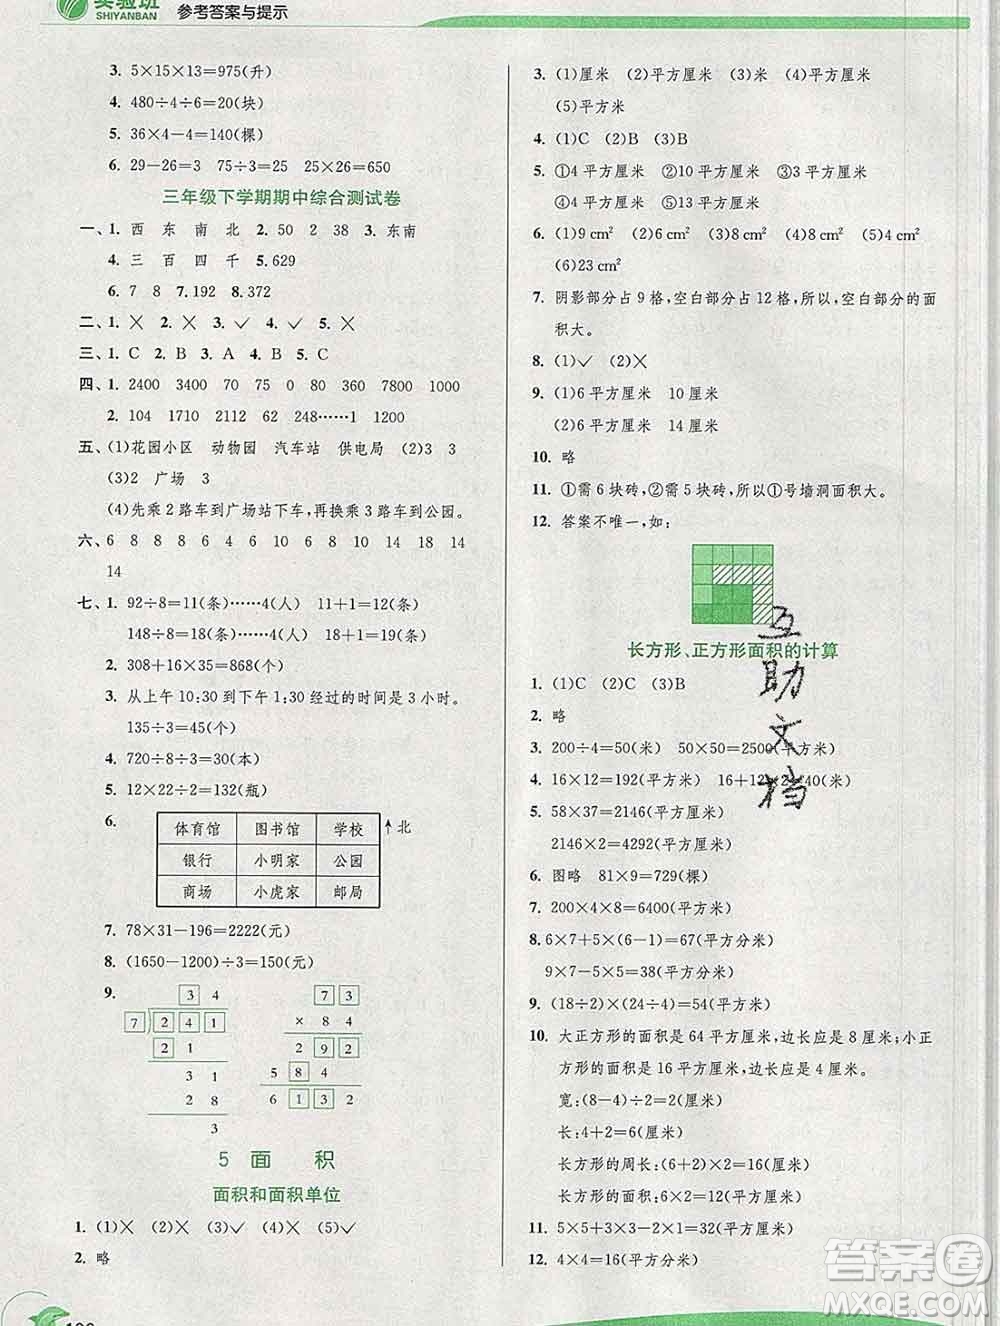 实验班
SHIYANBAN
参考答案与提示
3. 5×15×13=975(升)
4. 480÷4÷6=20(块)
5. 36×4-4=140(棵)
6. 29-26=3 75÷3=25 25×26=650
三年级下学期期中综合测试卷
一、1. 西 东 南 北 2. 50 2 38 3. 东南
4. 三 百 四 千 5. 629
6. 7 8 7. 192 8. 372
二、1. × 2. × 3. ✓ 4. ✓ 5. ×
三、1. C 2. B 3. A 4. B 5. C
四、1. 2400 3400 750 3600 7800 1000
2. 104 1710 2112 62 248……1 1200
五、(1)花园小区 动物园 汽车站 供电局 (2)3 3
(3)2 广场 3
(4)先乘2路车到广场站下车,再换乘3路车到公园。
六、6 8 8 8 6 4 6 9 10 8 18 14 18 14
14
七、1. 92÷8=11(条)……4(人) 11+1=12(条)
148÷8=18(条)……4(人) 18+1=19(条)
2. 308+16×35=868(个)
3. 从上午10:30到下午1:30经过的时间是3小时。
135÷3=45(个)
4. 720÷8÷3=30(本)
5. 12×22÷2=132(瓶)
6.
体育馆 图书馆 学校 ↑北
银行 小明家 公园
商场 小虎家 邮局
7. 78×31-196=2222(元)
8. (1650-1200)÷3=150(元)
9.
3 4
7 2 4 1
2 1
3 1
2 8
3
7 3
× 8 4
2 9 2
5 8 4
6 1 3 2
5 面 积
面积和面积单位
1. (1)× (2)× (3)✓ (4)× (5)✓
2. 略
3. (1)厘米 (2)平方厘米 (3)米 (4)平方厘米
(5)平方米
4. (1)C (2)B (3)B
5. ①4平方厘米 ②7平方厘米 ③3平方厘米
④4平方厘米 ⑤13平方厘米
6. (1)9 cm² (2)6 cm² (3)8 cm² (4)8 cm² (5)4 cm²
(6)23 cm²
7. 阴影部分占9格,空白部分占12格,所以,空白部分的面
积大。
8. (1)✓ (2)×
9. (1)6平方厘米 10厘米
(2)6平方厘米 14厘米
10. 略
11. ①需6块砖,②需5块砖,所以①号墙洞面积大。
12. 答案不唯一,如:
长方形、正方形面积的计算
1. (1)C (2)C (3)B
2. 略
3. 200÷4=50(米) 50×50=2500(平方米)
4. 16×12=192(平方米) 16+12×2=40(米)
5. 58×37=2146(平方米)
2146×2=4292(平方米)
6. 图略 81×9=729(棵)
7. 200×4×8=6400(平方米)
8. 6×7+5×(6-1)=67(平方分米)
9×7-5×5=38(平方厘米)
9. (18÷2)×(24÷4)=54(平方米)
10. 大正方形的面积是64平方厘米,边长应是8厘米;小正
方形的面积是16平方厘米,边长应是4厘米。
宽:(8-4)÷2=2(厘米)
长:4+2=6(厘米)
长方形的周长:(6+2)×2=16(厘米)
长方形的面积:6×2=12(平方厘米)
11. 5×5+3×3-2×1=32(平方厘米)
12. 4×4=16(平方分米)
互助文档
答案圈
MXQE.COM